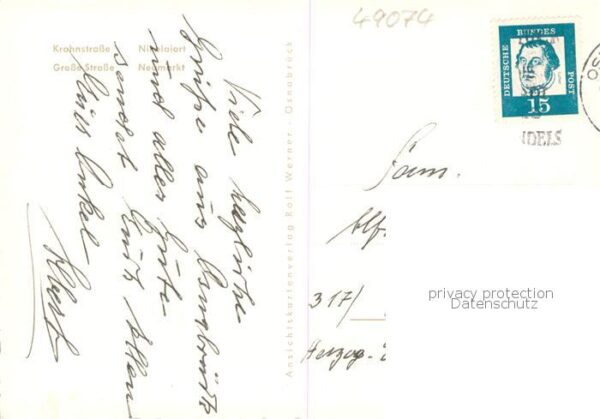 49074
Krahnstraße Nikolaiort
Große Straße Neumarkt
Viele herzliche
Grüße aus Osnabrück
und alles Gute
sendet Euch Allen
Onkel
Ansichtskartenverlag Rolf Werner · Osnabrück
DEUTSCHE BUNDES POST
15
NDELS
OS
Fam.
Alf
317/
Herzog-
privacy protection
Datenschutz